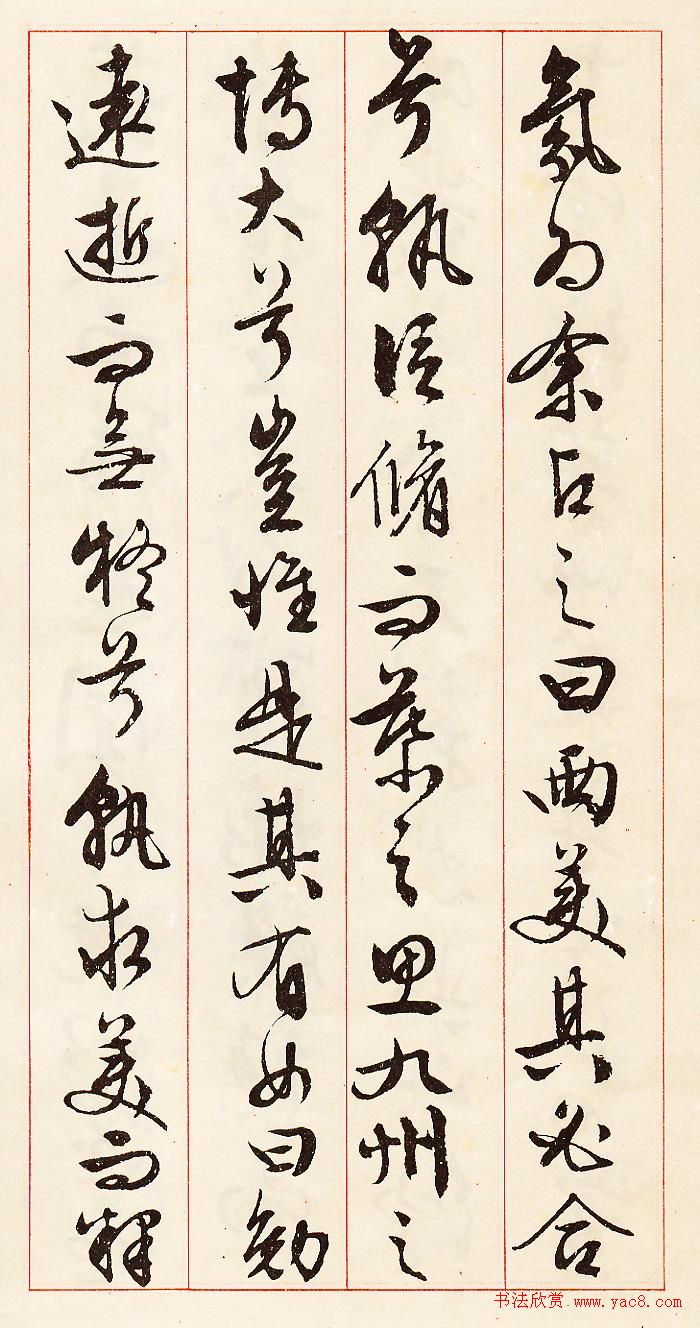 氛为余占之曰两美其必合
兮孰信脩而慕之思九州之
博大兮豈惟是其有女曰勉
遠逝而無狐兮孰求美而釋
书法欣赏 www.yac8.com